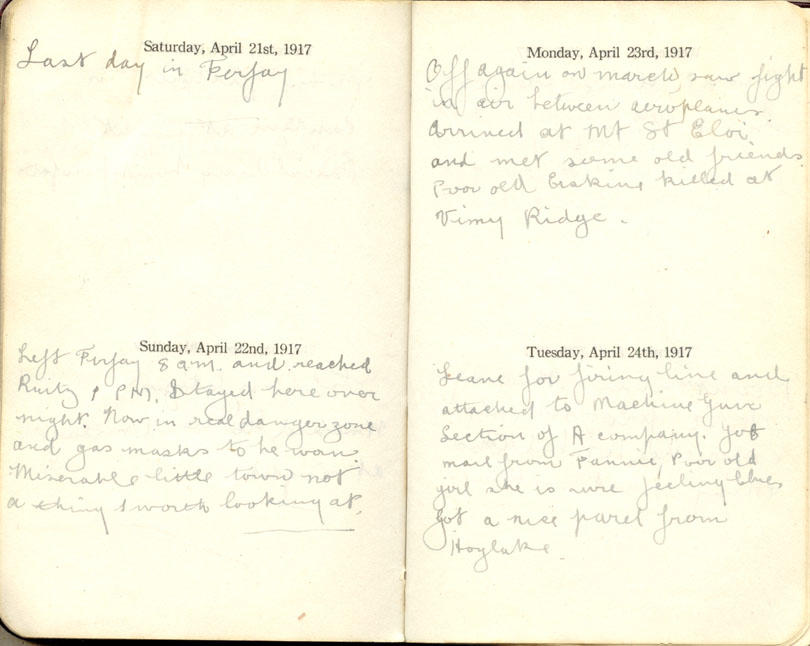 Saturday, April 21st, 1917
Last day in Ferfay
Sunday, April 22nd, 1917
Left Ferfay 8 am. and reached
Ruitz 1 PM. Stayed here over
night. Now in real danger zone
and gas masks to be worn.
Miserable little town not
a thing worth looking at.
Monday, April 23rd, 1917
Off again on march, saw fight
in air between aeroplanes.
Arrived at Mt St Eloi
and met some old friends.
Poor old Erskine killed at
Vimy Ridge.
Tuesday, April 24th, 1917
Leave for firing line and
attached to Machine Gun
Section of A company. Got
mail from Fannie, Poor old
girl she is sure feeling blue
Got a nice parcl from
Hoylake.